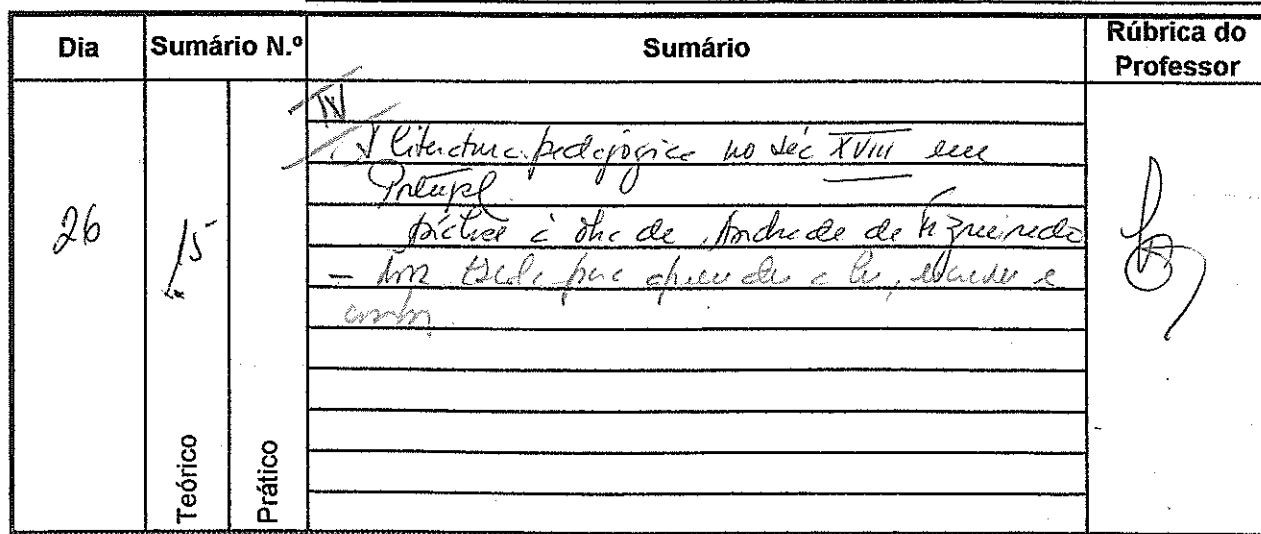 Dia Sumário N.º Sumário Rúbrica do Professor
26 15
Teórico
Prático
IV
A literatura pedagógica no séc XVIII em
Portugal.
à de Andrade de Figueiredo
– Escola para aprender a ler, escrever e
contar